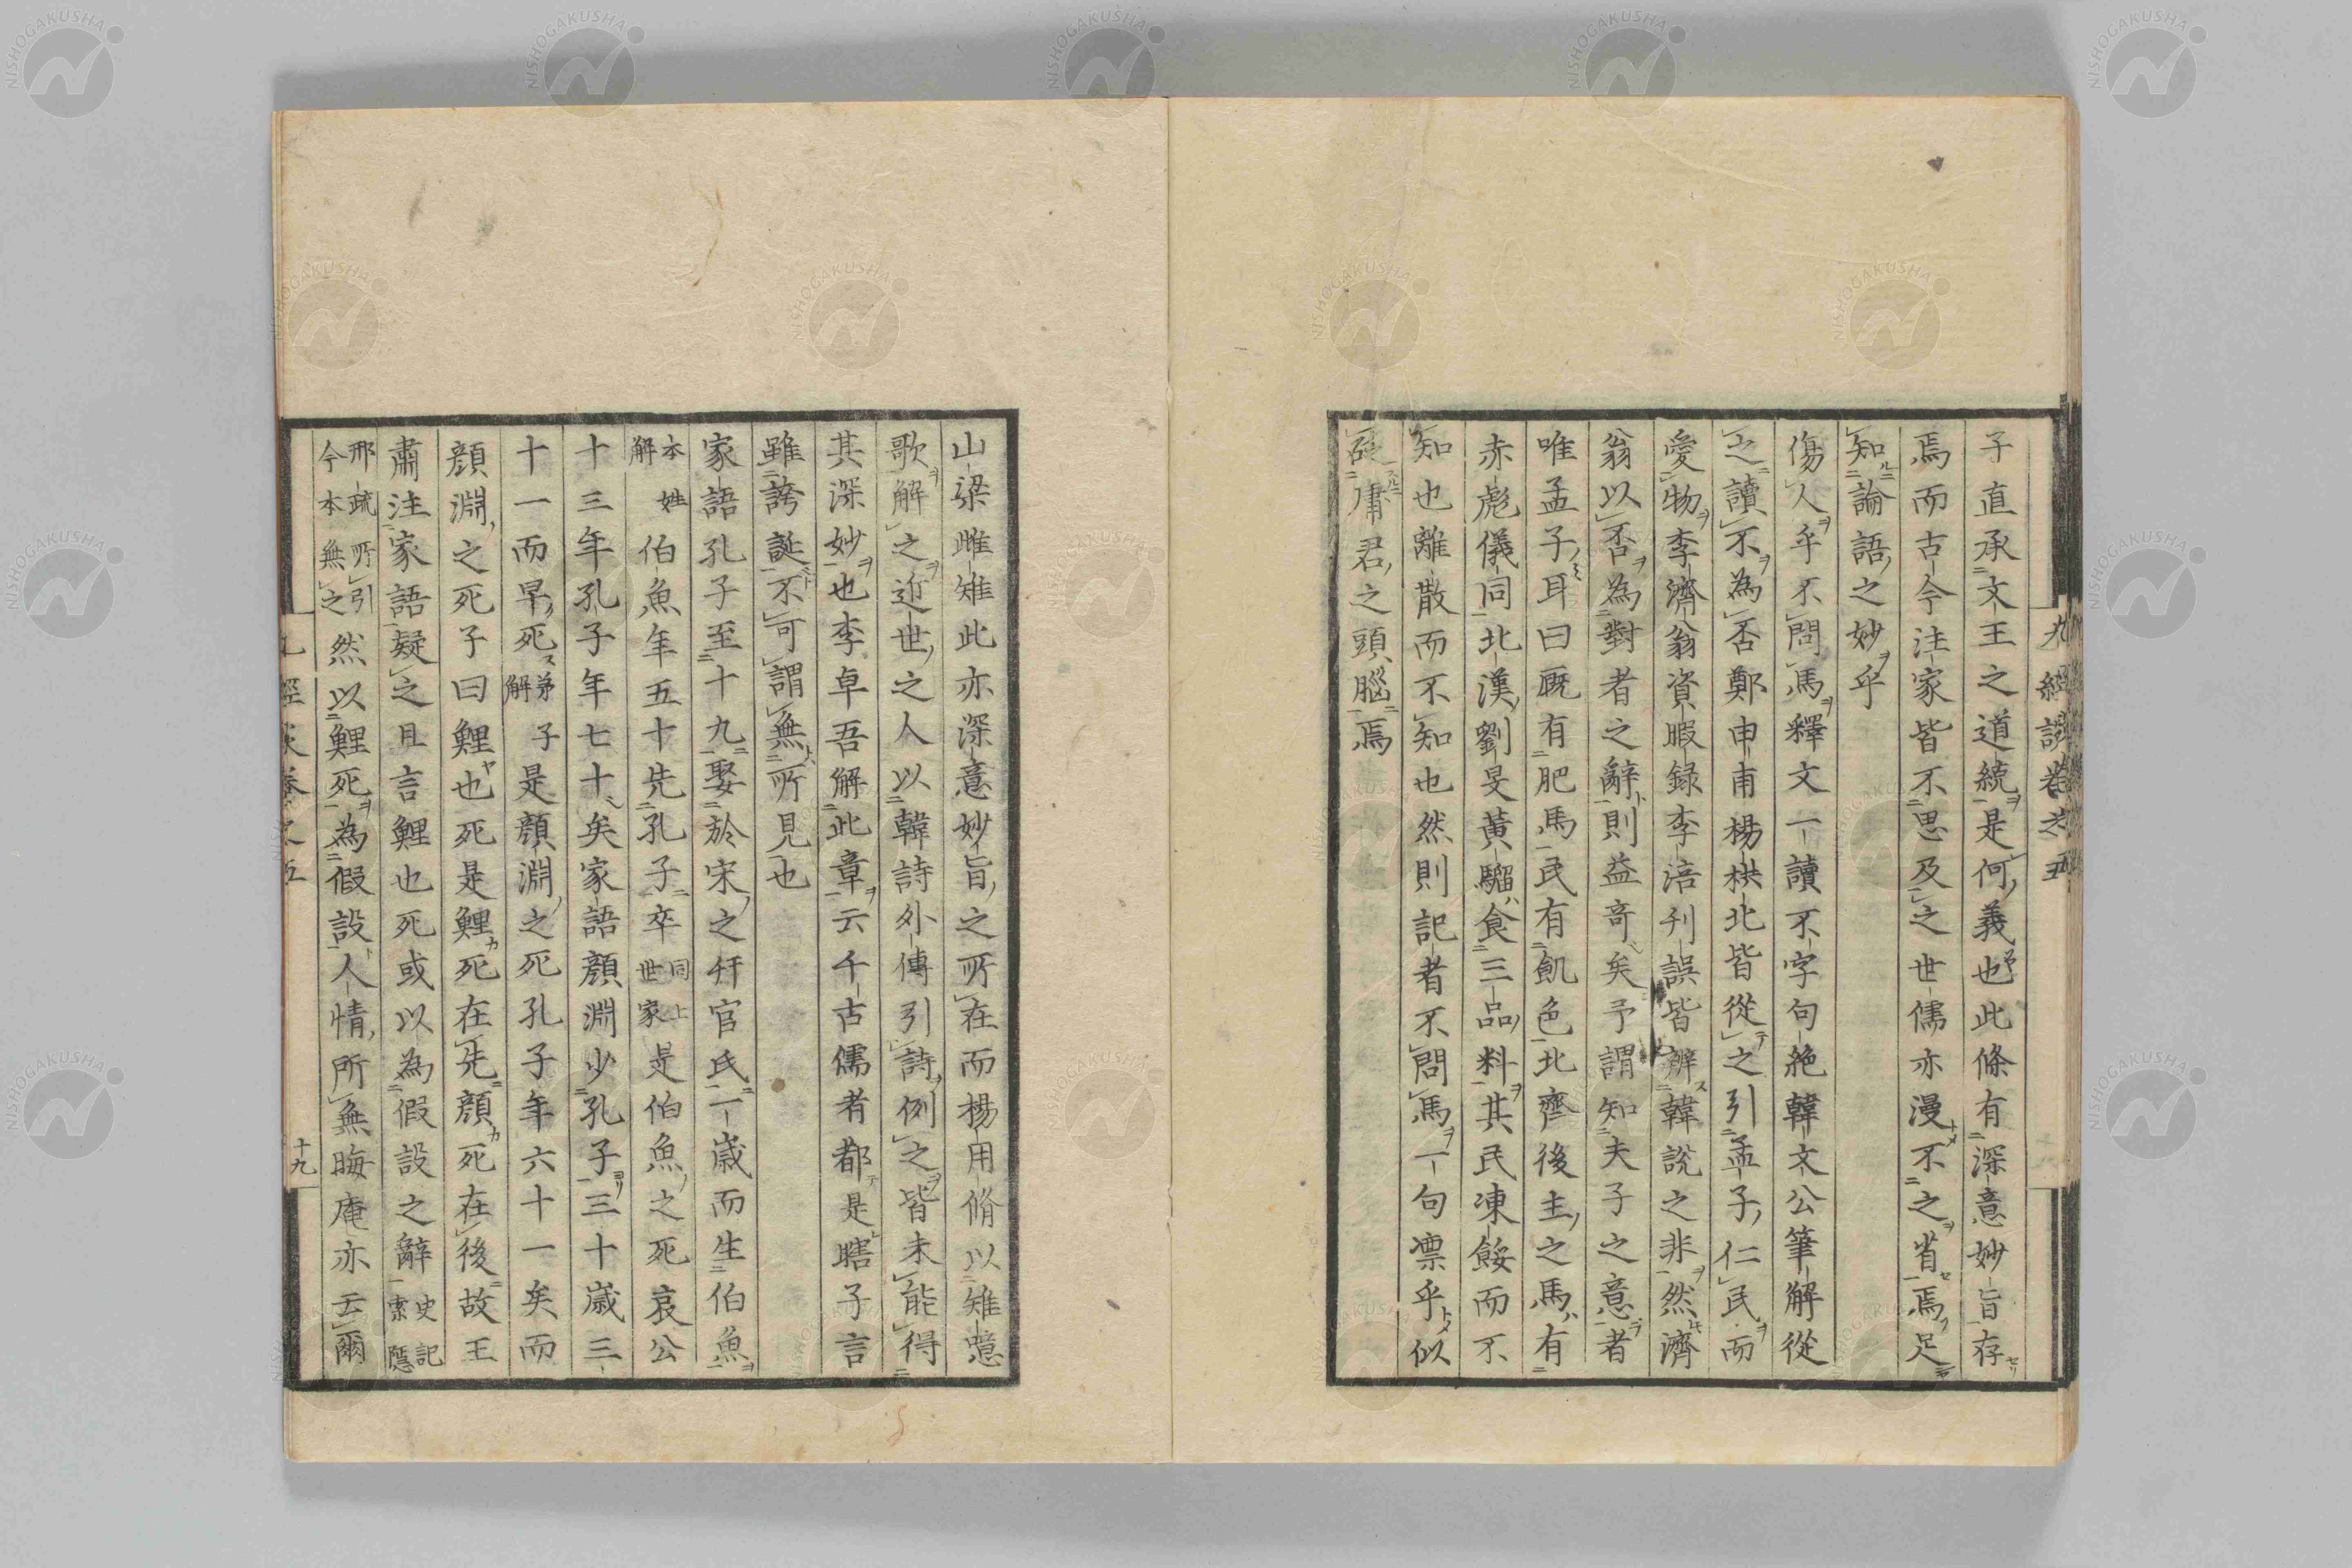 九經談卷之五
子直承文王之道統是何義也此條有深意妙旨存
焉而古今注家皆不思及之世儒亦漫不之省焉足
知論語之妙乎
傷人乎不問馬釋文一讀不字句絶韓文公筆解從
之讀不為否鄭申甫楊林北皆從之引孟子仁民而
愛物李濟翁資暇録李涪刊誤皆辨韓說之非然濟
翁以否為對者之辭則益奇矣予謂知夫子之意者
唯孟子耳曰厩有肥馬民有飢色北齊後主之馬有
赤彪儀同北漢劉旻黃騮食三品料其民凍餒而不
知也離散而不知也然則記者不問馬一句凛乎似
庸君之頭腦焉
山梁雌雉此亦深意妙旨之所在而楊用脩以雉噫
歌解之近世之人以韓詩外傳引詩例之皆未能得
其深妙也李卓吾解此章云千古儒者都是瞎子言
雖誇誕不可謂無所見也
家語孔子至十九娶於宋之幵官氏一歲而生伯魚
本姓解伯魚年五十先孔子卒同上世家是伯魚之死哀公
十三年孔子年七十矣家語顏淵少孔子三十歲三
十一而早死弟子解是顏淵之死孔子年六十一矣而
顏淵之死子曰鯉也死是鯉死在先顏死在後故王
肅注家語疑之且言鯉也死或以為假設之辭史記索隱
邢疏所引今本無之然以鯉死為假設人情所無晦庵亦云爾
九經談卷之五
十九
NISHOGAKUSHA